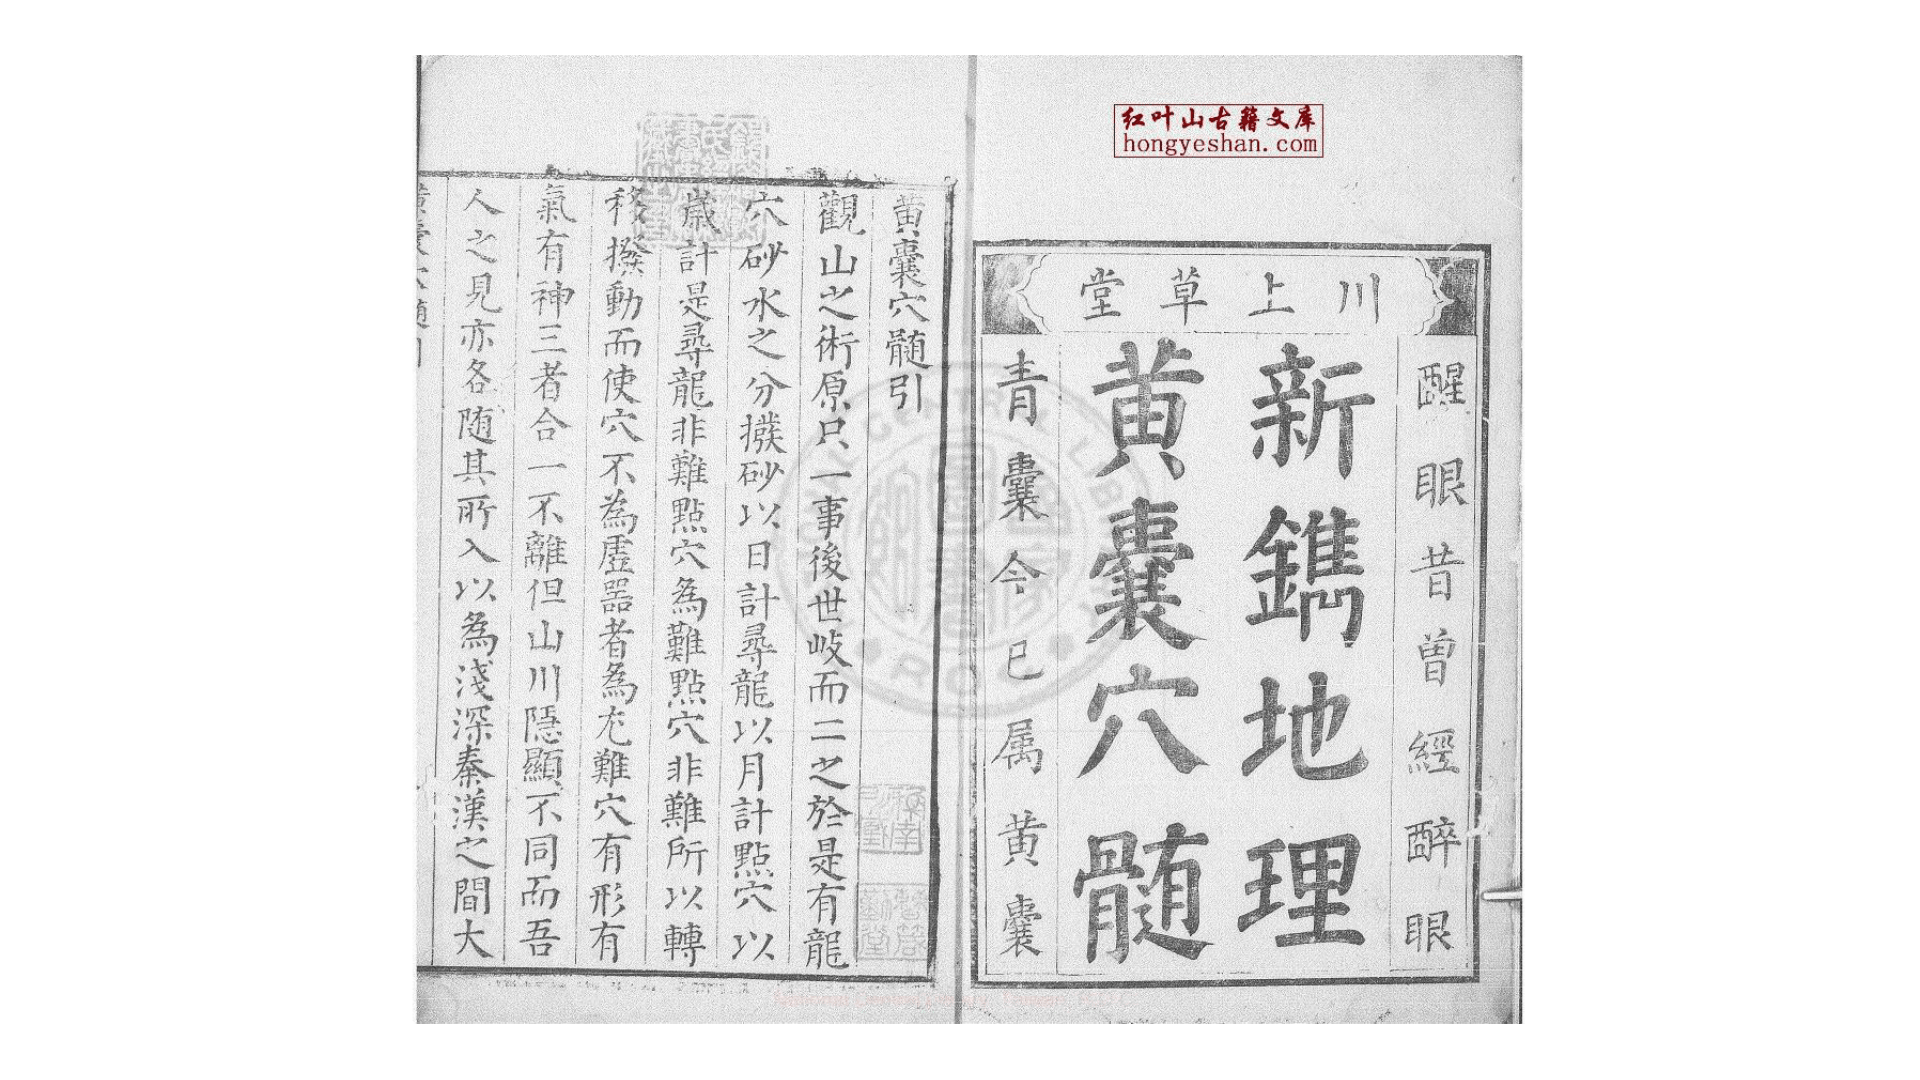 红叶山古籍文库
hongyeshan.com
川上草堂
醒眼昔曾經醉眼
新鐫地理
黄囊穴髓
青囊今已属黄囊
黄囊穴髓引
觀山之術原只一事後世岐而二之於是有龍
穴砂水之分撥砂以日計尋龍以月計點穴以
歲計是尋龍非難點穴為難點穴非難所以轉
移撥動而使穴不為虚器者為尤難穴有形有
氣有神三者合一不離但山川隠顯不同而吾
人之見亦各随其所入以為淺深秦漢之間大
National Central Library, Taiwan, R.O.C